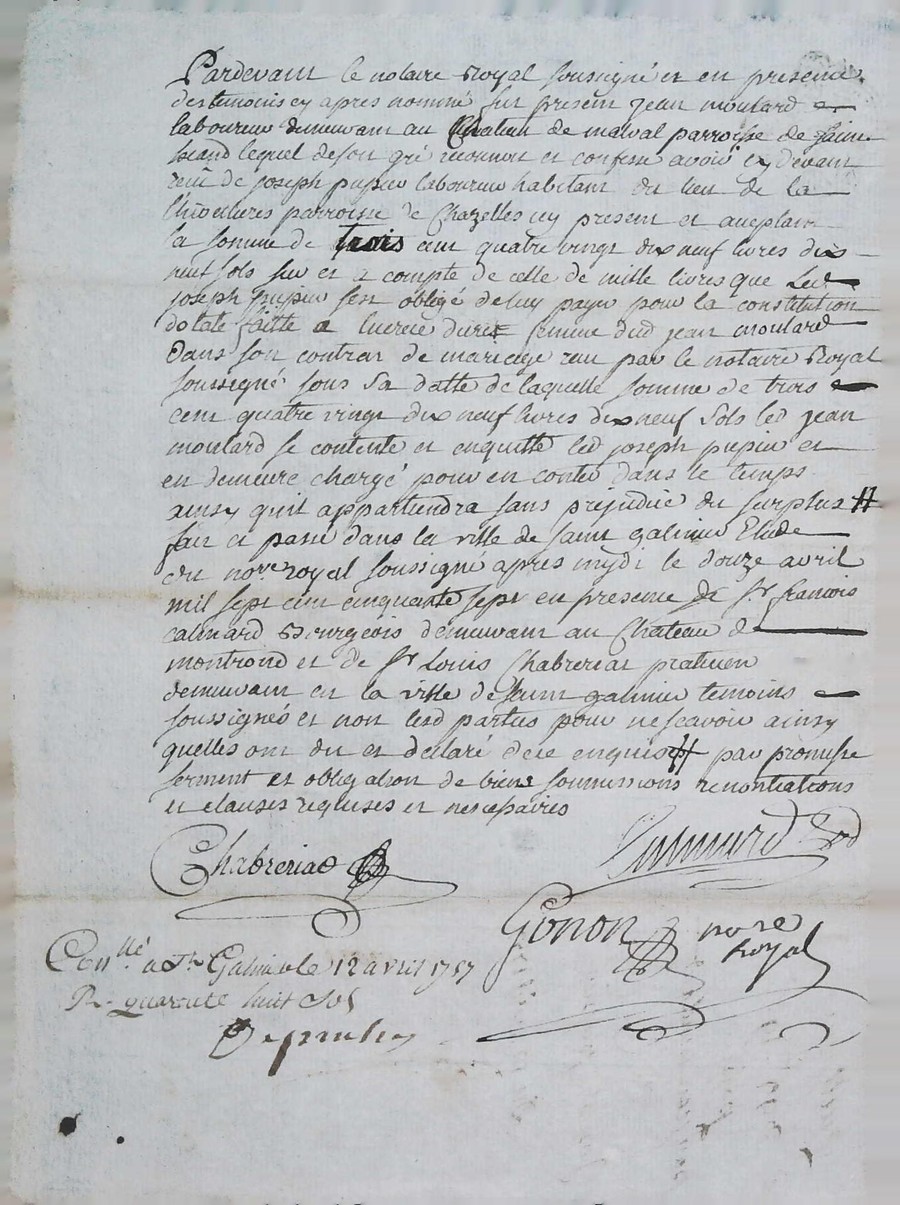 Pardevant le notaire Royal soussigné et en presence
des temoins cy apres nommé fut present jean moulard
laboureur demeurant au Chateau de malval parroisse de Saint
lequel de son gré reconnoit et confesse avoir cy devant
receu de joseph pupier laboureur habitant du lieu de la
parroisse de Chazelles icy present et acceptant
la somme de trois cent quatre vingt dix neuf livres dix
neuf sols sur et a compte de celle de mille livres que Led
joseph pupier s'est obligé de luy payer pour la constitution
dotale faitte a femme dud jean moulard
dans son contrat de mariage receu par le notaire Royal
soussigné sous sa datte de laquelle somme de trois
cent quatre vingt dix neuf livres dix neuf sols led jean
moulard se contente et enquitte led joseph pupier et
en demeure chargé pour en conter dans le temps
ainsy quil appartiendra sans prejudice du surplus #
fait et passé dans la ville de saint galmier Etude
du nore royal soussigné apres mydi le douze avril
mil sept cent cinquante sept en presence de Sr francois
calmard Bourgeois demeurant au Chateau de
montrond et de Sr Louis Chabreriat praticien
demeurant en la ville de saint galmier temoins
soussignés et non lesd parties pour ne scavoir ainsy
quelles ont dit et declaré de ce enquis # par promesse
serment et obligation de biens soumissions renontiations
et clauses requises et nescessaires
Chabreriat Calmard
Gonon nore
royal
Conllé a St Galmier le 12 avril 1757
R. quarente huit sols